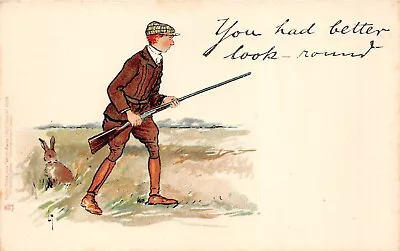 You had better
look - round